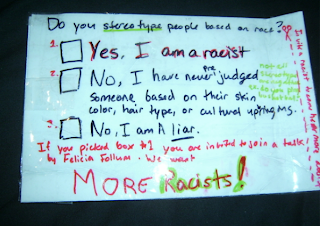 Do you stereotype people based on race? or
1. Yes, I am a racist
2. No, I have never pre judged
someone based on their skin
color, hair type, or cultural upbringings.
3. No, I am A liar.
If you picked box #1 you are invited to join a task
by Felicia Follum. We want
MORE Racists!